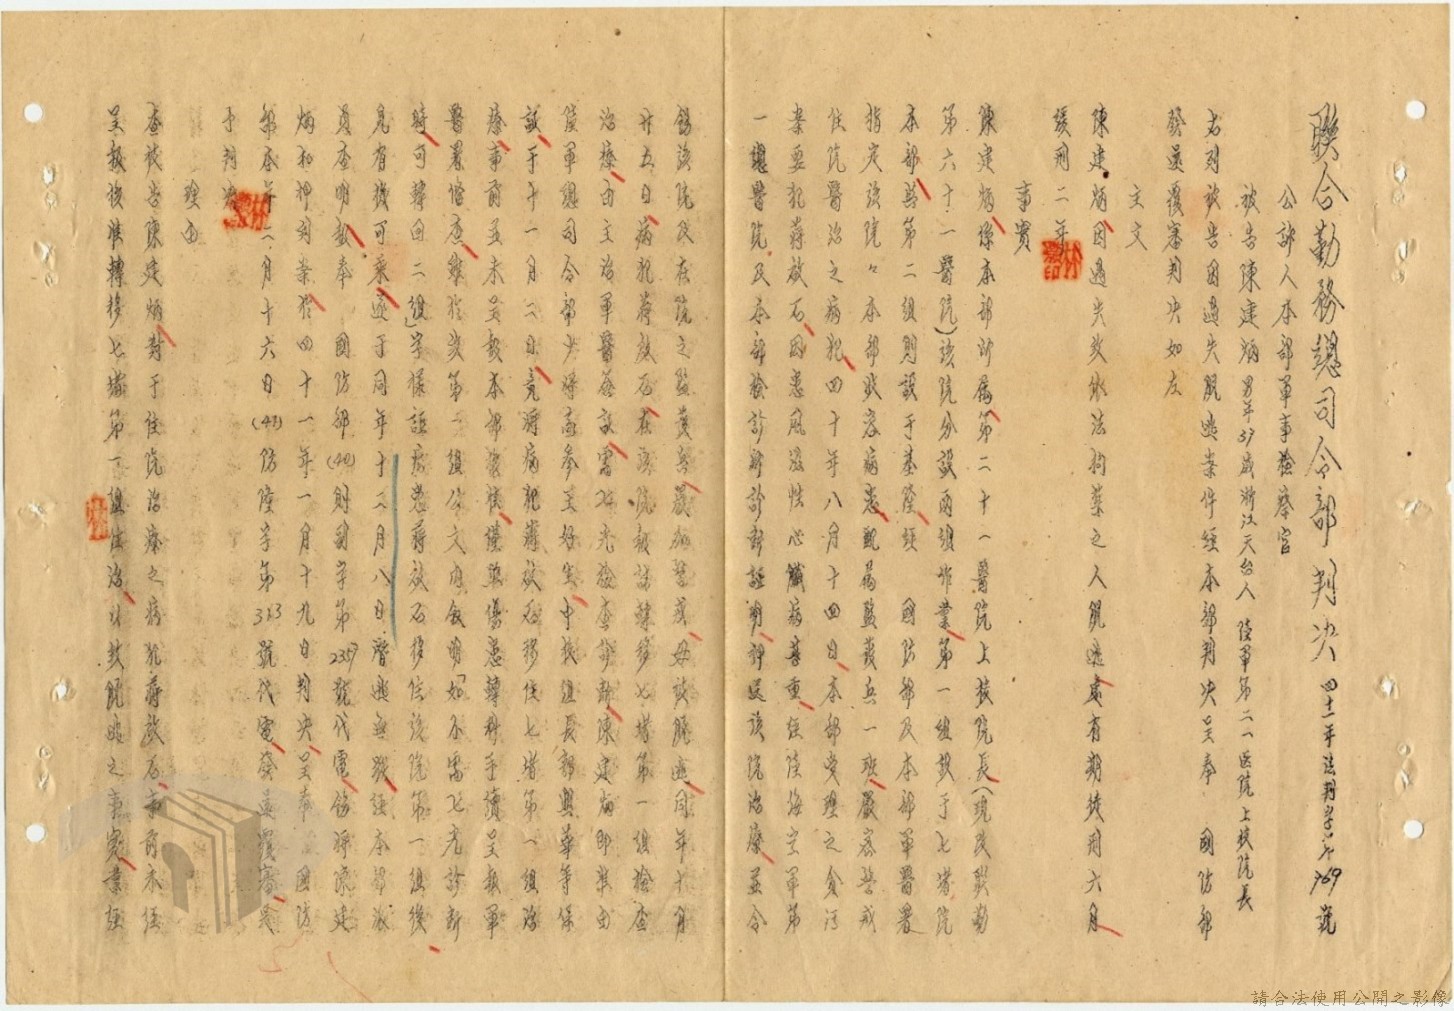 聯合勤務總司令部判決 四十一年法判字第769號
公訴人本部軍事檢察官
被告陳建炳男年37歲浙江天台人陸軍第二一医院上校院長
右列被告因過失脫逃案件經本部判決呈奉 國防部
發還覆審判決如左
主文
陳建炳因過失致依法拘禁之人脫逃處有期徒刑六月
緩刑二年
事實
陳建炳係本部所屬第二十一醫院上校院長(現改聯勤
第六十一醫院)該院分設兩組作業第一組設于七堵院
本部 第二組則設于基隆經 國防部及本部軍醫署
指定該院 本部收容病患 屬監護兵一班嚴密警戒
住院醫治之病犯四十年八月十四日本部受理之貪污
案要犯蔣放石因患風濕性心臟病甚重經陸海空軍第
一總醫院及本部檢診所診斷証明押送該院治療並令
飭該院及在院之監護 嚴加警戒毋被脫逃同年十月
廿五日病犯蔣放石在該院報請轉移七堵第一組檢查
治療由主治軍醫 診斷陳建炳即准由
陸軍總司令部少將高參王好生中校組長郭興華等保
証于十一月二日竟將病犯蔣放石移住七堵第一組治
療事前並未呈報本部 僅 傷患轉科手續呈報軍
醫署備查雖於該第一組公文內敘明「如不需七堵診斷
時可轉回二組」字樣詎病患蔣放石移住該院第一組後
見有機可乘遂于同年十二月八日潛逃無蹤經本部派
員查明報奉 國防部(40)則副字第2357號代電飭將陳建
炳扣押到案於四十一年一月十九日判決呈奉 國防
部本年二月十六日(41)防陸字第313號代電發還覆審是
予判決
理由
查被告陳建炳對于住院治療之病犯蔣放石事前未經
呈報核准轉移七堵第一組住治以致脫逃之事實業經
請合法使用公開之影像